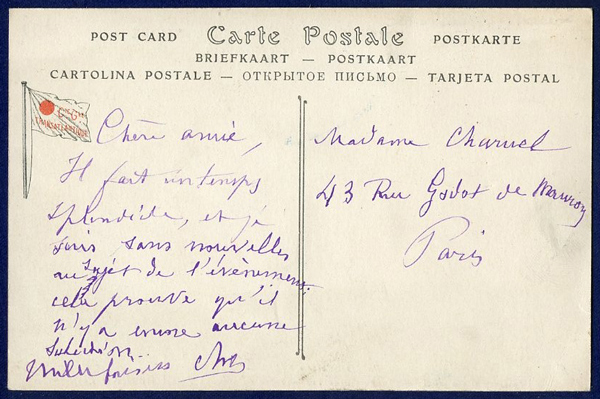 POST CARD Carte Postale POSTKARTE
BRIEFKAART — POSTKAART
CARTOLINA POSTALE — ОТКРЫТОЕ ПИСЬМО — TARJETA POSTAL
Cie Gle
TRANSATLANTIQUE
Chère amie,
Il fait un temps
splendide, et je
suis sans nouvelles
au sujet de l'évènement.
cela prouve qu'il
n'y a aucune
Madame Charuel
43 Rue Godot de Mauroy
Paris